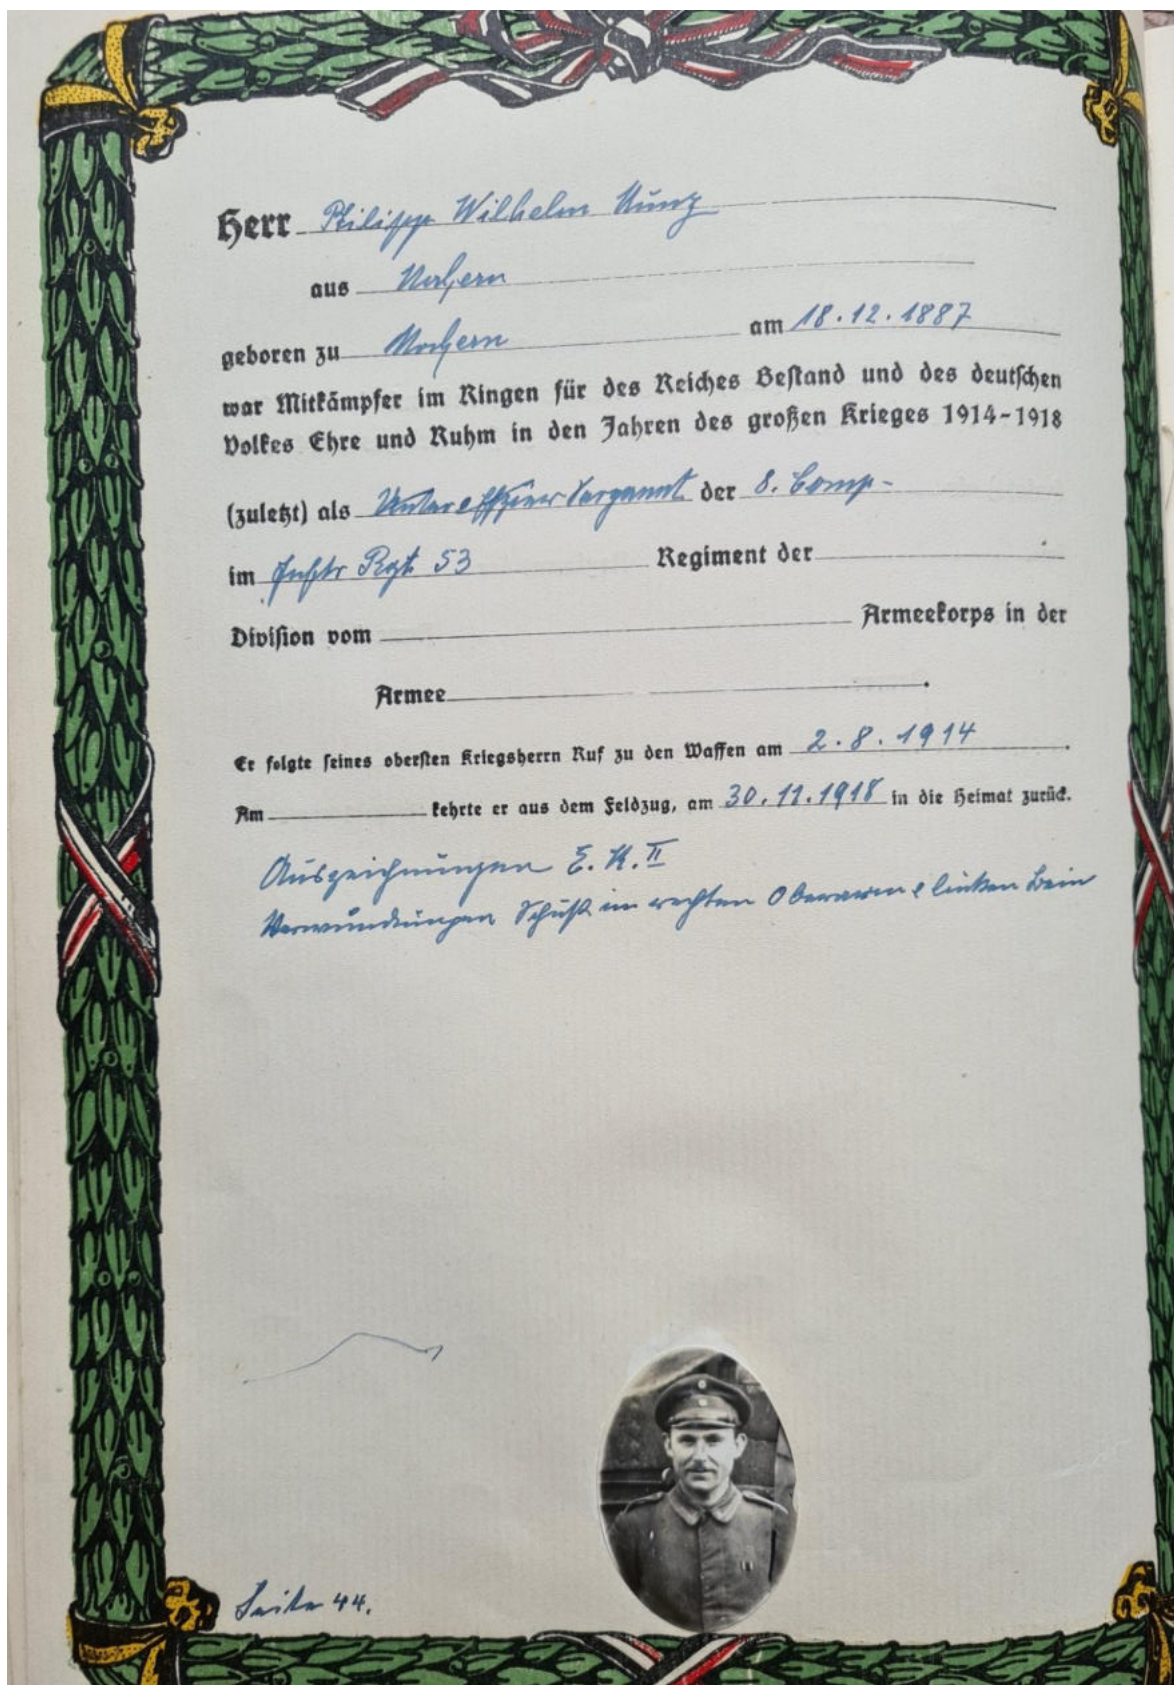 Herr Philipp Wilhelm Kunz
aus Nochern
geboren zu Nochern am 18.12.1887
war Mitkämpfer im Ringen für des Reiches Bestand und des deutschen
Volkes Ehre und Ruhm in den Jahren des großen Krieges 1914-1918
(zuletzt) als Unteroffizier Sergeant der 8. Comp-
im Inftr Rgt 53 Regiment der
Division vom Armeekorps in der
Armee .
Er folgte seines obersten Kriegsherrn Ruf zu den Waffen am 2.8.1914 .
Am kehrte er aus dem Feldzug, am 30.11.1918 in die Heimat zurück.
Auszeichnungen E.K.II
Verwundungen Schuß im rechten Oberarm & linken Bein
Seite 44.